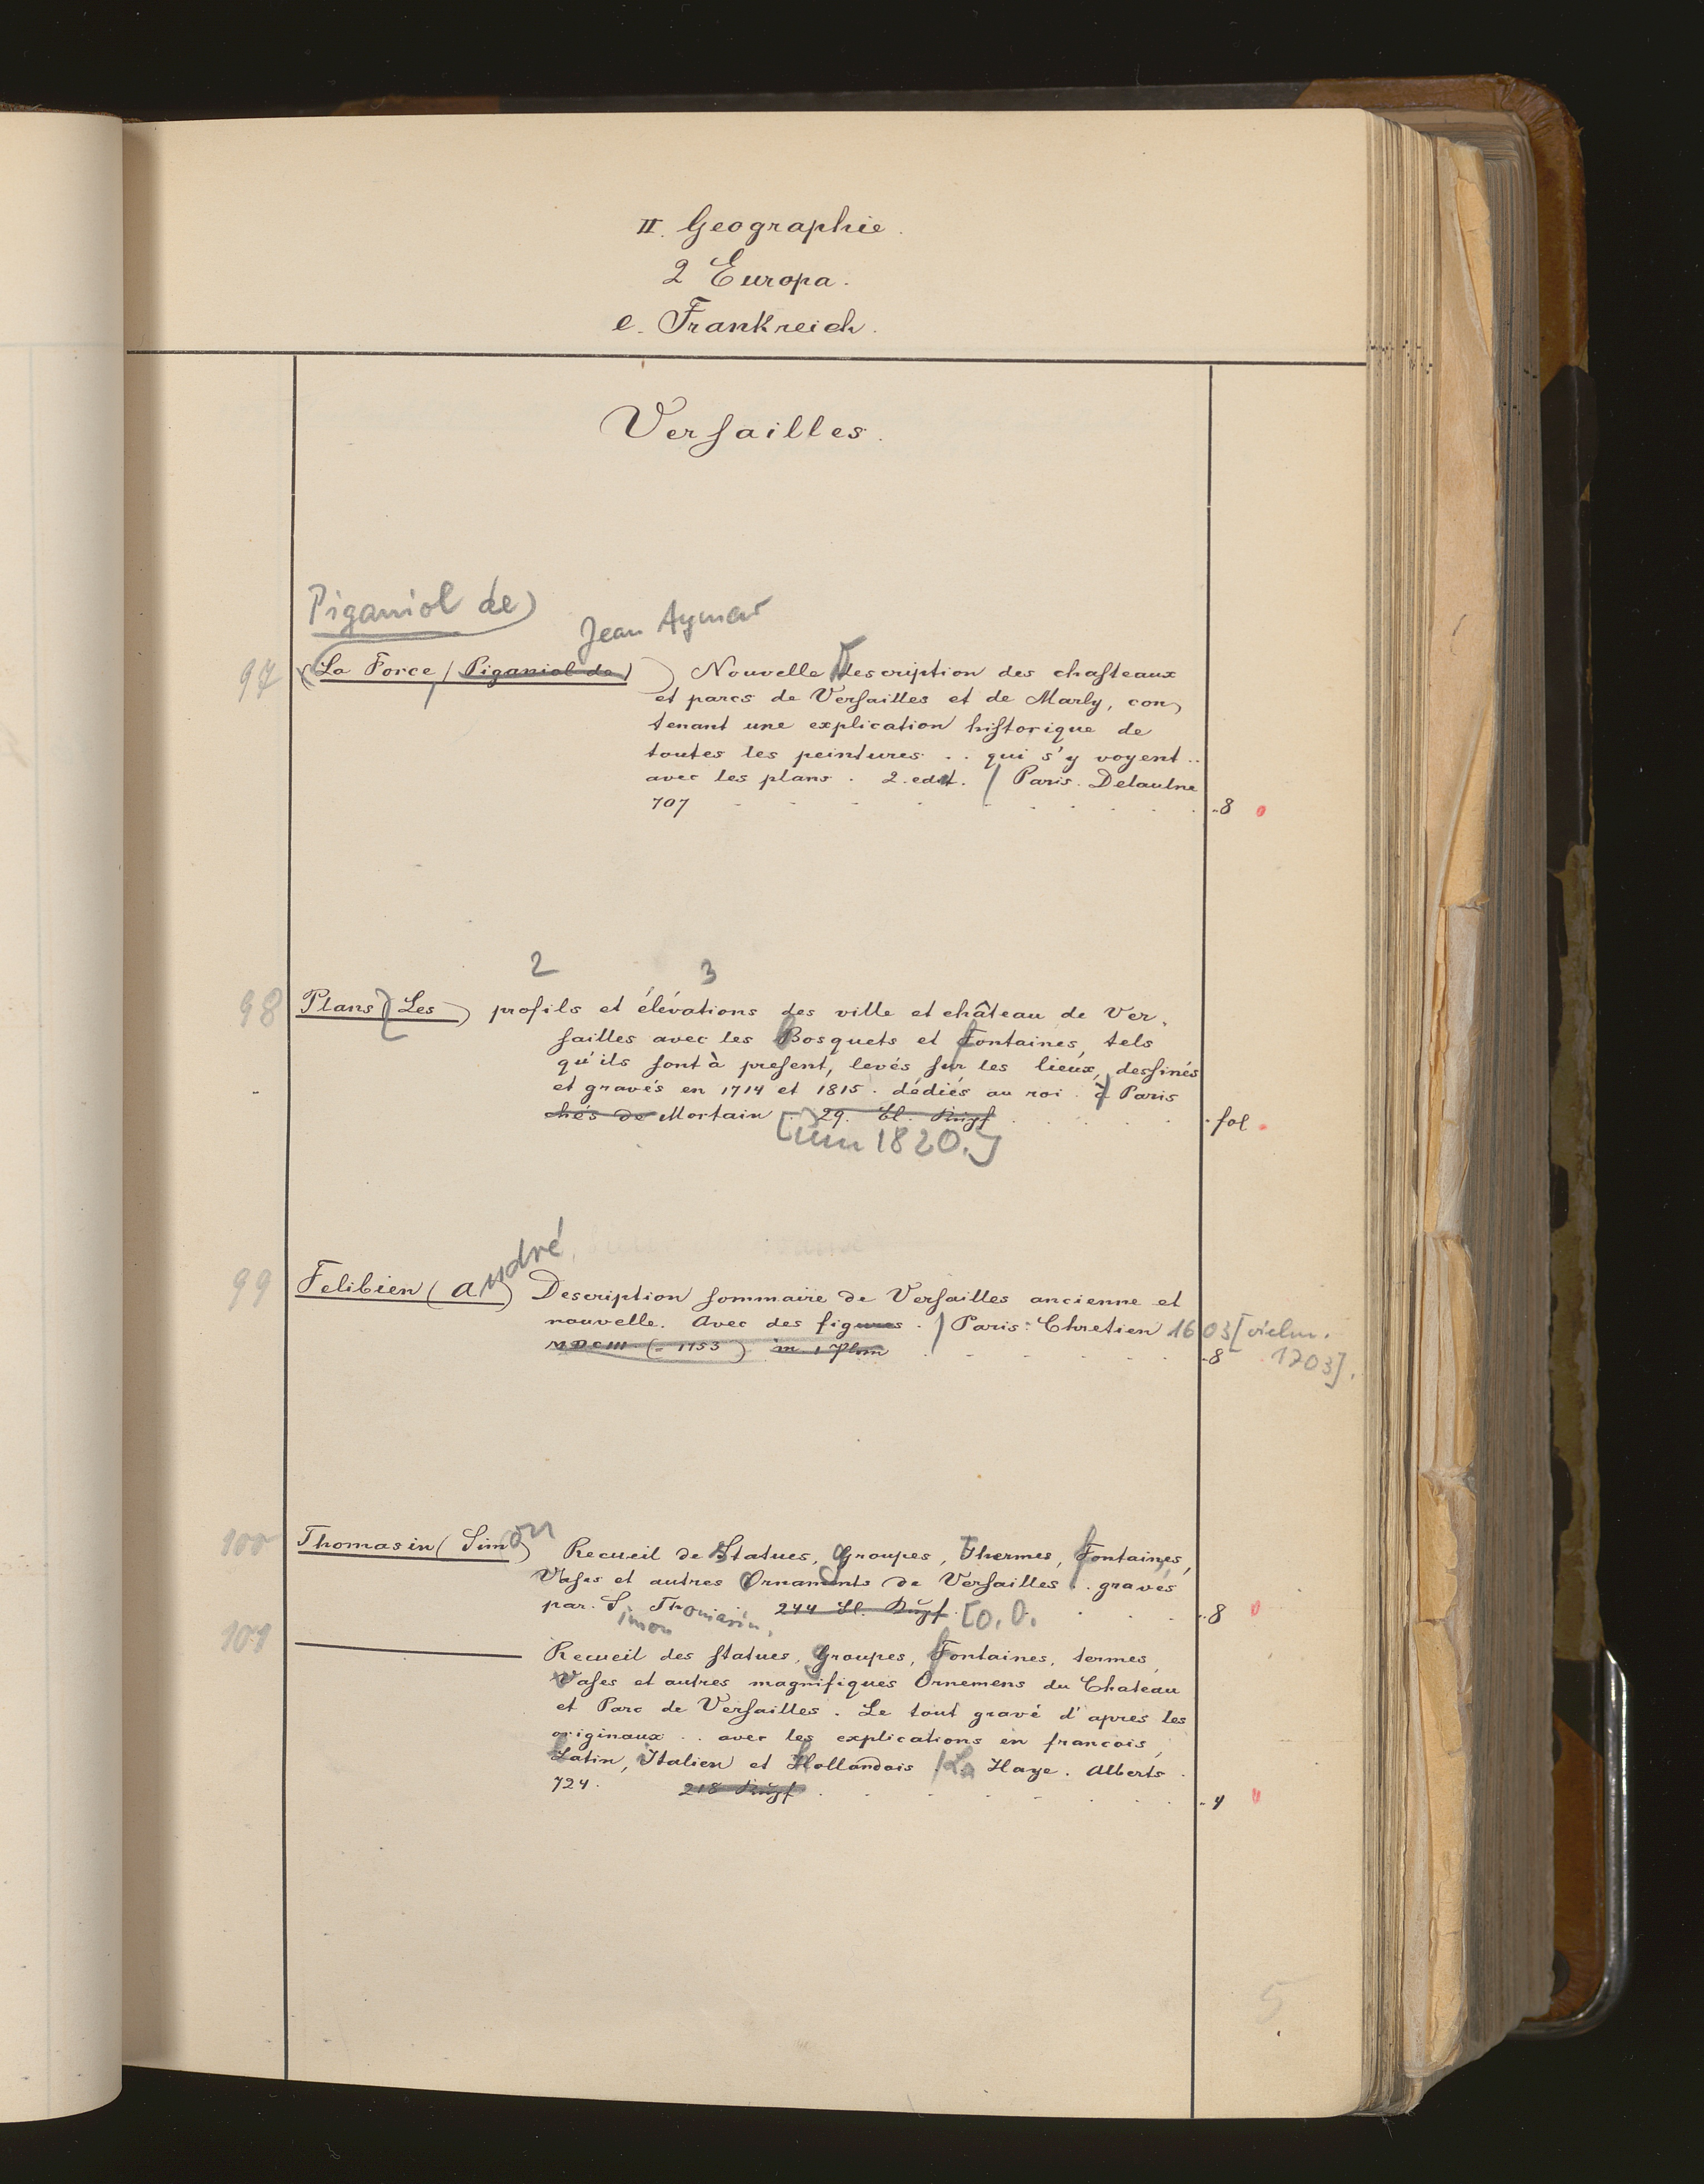 II. Geographie.
2 Europa.
e. Frankreich.
Verſailles.
Piganiol de)
Jean Aymar
97 (La Force, (Piganiol de) ) Nouvelle Description des chaſteaux
et parcs de Verſailles et de Marly, con
tenant une explication hiſtorique de
toutes les peintures .. qui s'y voyent ..
avec les plans. 2. edit. / Paris. Delaulne
707 - - - - - - - 8 0
2 3
98 Plans (Les) profils et élévations des ville et château de Ver
ſailles avec les bosquets et fontaines, tels
qu'ils ſont à preſent, levés ſur les lieux, deſſinés
et gravés en 1714 et 1815. dédiés au roi. à Paris
chés de Mortain 29. Bl. Kupf . . . . fol
[um 1820.]
André
99 Felibien (A.) Description ſommaire de Verſailles ancienne et
nouvelle. Avec des figures. / Paris: Chretien 1603 [vielm.
MDCIII (= 1753) in 1 . . . . 8 1703].
100 Thomasin (Simon) Recueil de Statues, Groupes, Thermes, fontaines,
Vaſes et autres Ornaments de Verſailles .. gravés
par. S. Thomasin, 244 Bl. Kupf. [o. O. . . . 8 0
imon
101 ——— Recueil des ſtatues, groupes, fontaines, termes,
vaſes et autres magnifiques Ornemens du Chateau
et Parc de Verſailles. Le tout gravé d'apres les
originaux .. avec les explications en francois,
latin, italien et hollandois / La Haye. Alberts.
724. 218 Kupf . . . . . 4 0
5